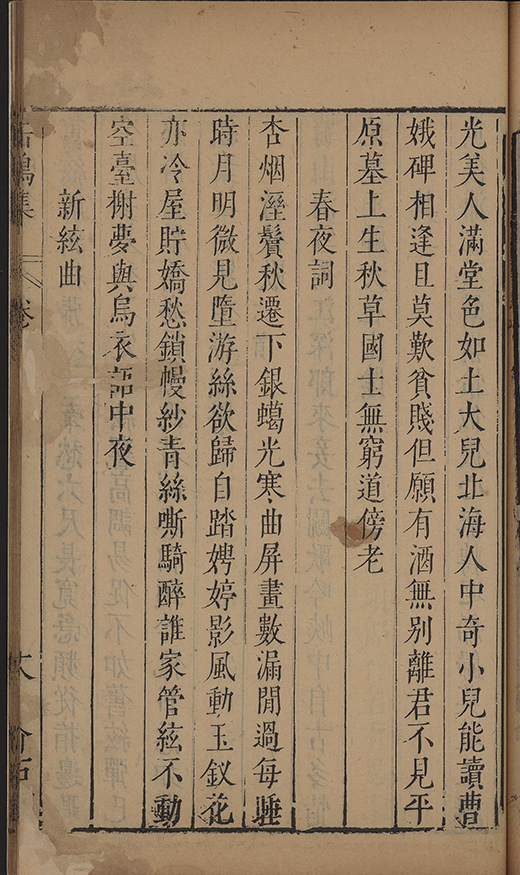 光美人滿堂色如土大兒北海人中奇小兒能讀曹
娥碑相逢且莫歎貧賤但願有酒無別離君不見平
原墓上生秋草國士無窮道傍老
春夜詞
杏烟溼鬢秋遷下銀蠍光寒曲屏畫數漏閒過每睡
時月明微見墮游絲欲歸自踏娉婷影風動玉釵花
亦冷屋貯嬌愁鎖幔紗青絲嘶騎醉誰家管絃不動
空臺榭夢與烏衣語中夜
新絃曲
集 卷